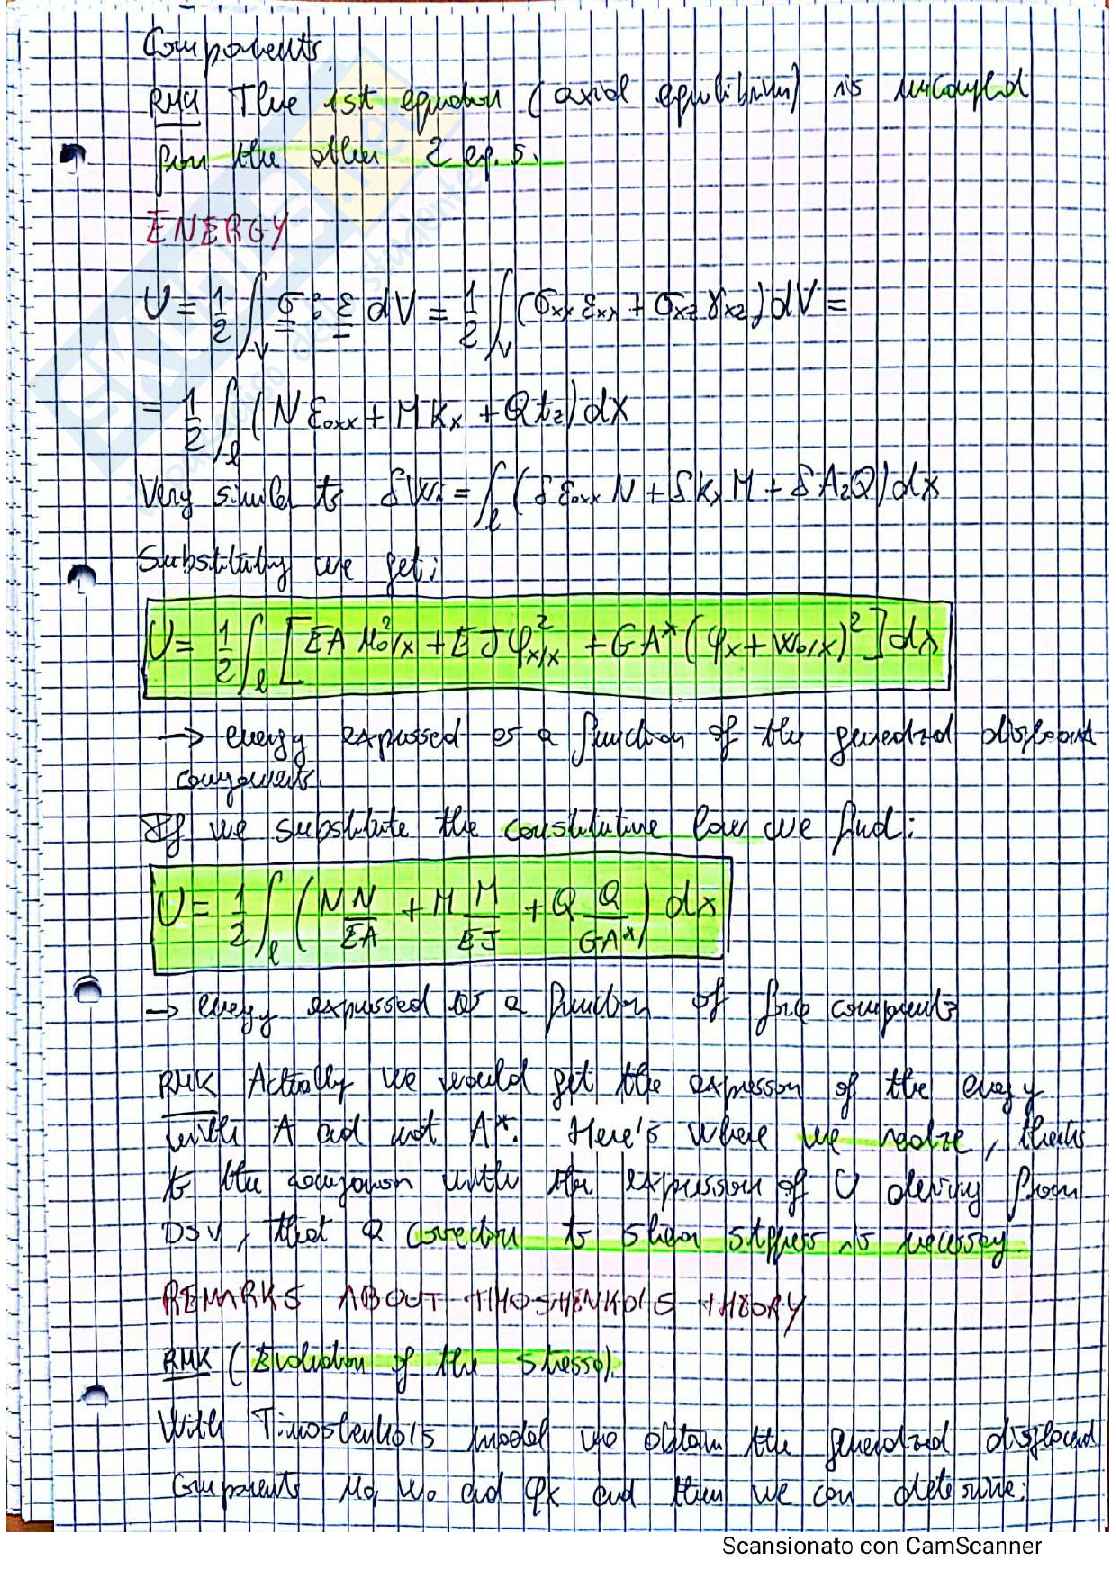 Components
RMK The 1st equation (axial equilibrium) is uncoupled
from the other 2 eq.s.
ENERGY
U = 1/2 ∫_V σ : ε dV = 1/2 ∫_V (σxx εxx + σxz γxz) dV =
= 1/2 ∫_l (N ε0xx + M Kx + Q tz) dx
Very similar to δWi = ∫_l (δε0xx N + δKx M + δAz Q) dx
Substituting we get:
U = 1/2 ∫_l [EA u0²/x + EJ φx²/x + GA* (φx + w0/x)²] dx
→ energy expressed as a function of the generalized displacement
components.
If we substitute the constitutive law we find:
U = 1/2 ∫_l (N N/EA + M M/EJ + Q Q/GA*) dx
→ energy expressed as a function of force components
RMK Actually we would get the expression of the energy
with A and not A*. Here's where we realize, thanks
to the comparison with the expression of U deriving from
DSV, that a correction to shear stiffness is necessary
REMARKS ABOUT TIMOSHENKO'S THEORY
RMK (Evaluation of the stresses).
With Timoshenko's model we obtain the generalized displacement
components u0, w0 and φx and then we can determine:
Scansionato con CamScanner